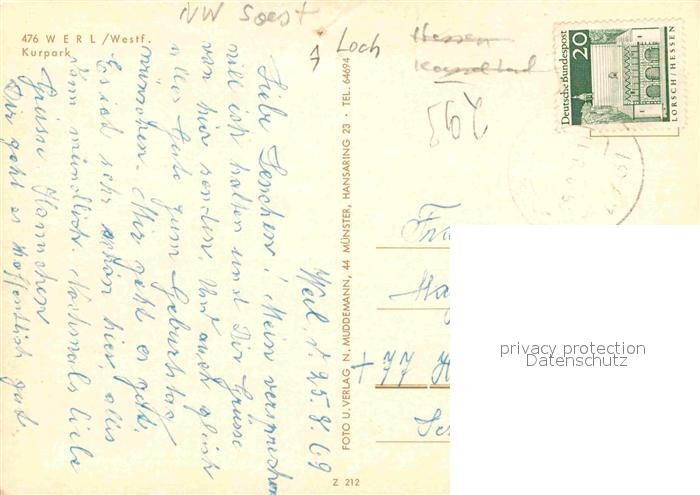 476 WERL/Westf.
Kurpark
NW Soest
Loch
Hessen
295
Deutsche Bundespost
20
LORSCH/HESSEN
Werl, d. 25.8.69
Liebe Lenchen! Mein versprechen
will ich halten und Dir Grüsse
von hier senden. Und auch gleich
alles Gute zum Geburtstag
wünschen. Mir geht es gut.
Es ist sehr schön hier, alles
dann mündlich. Nochmals liebe
Grüsse Hannchen
Dir geht es hoffentlich gut.
FOTO U. VERLAG N. MUDDEMANN, 44 MÜNSTER, HANSARING 23 · TEL. 64694
Z 212
+77 H
privacy protection
Datenschutz